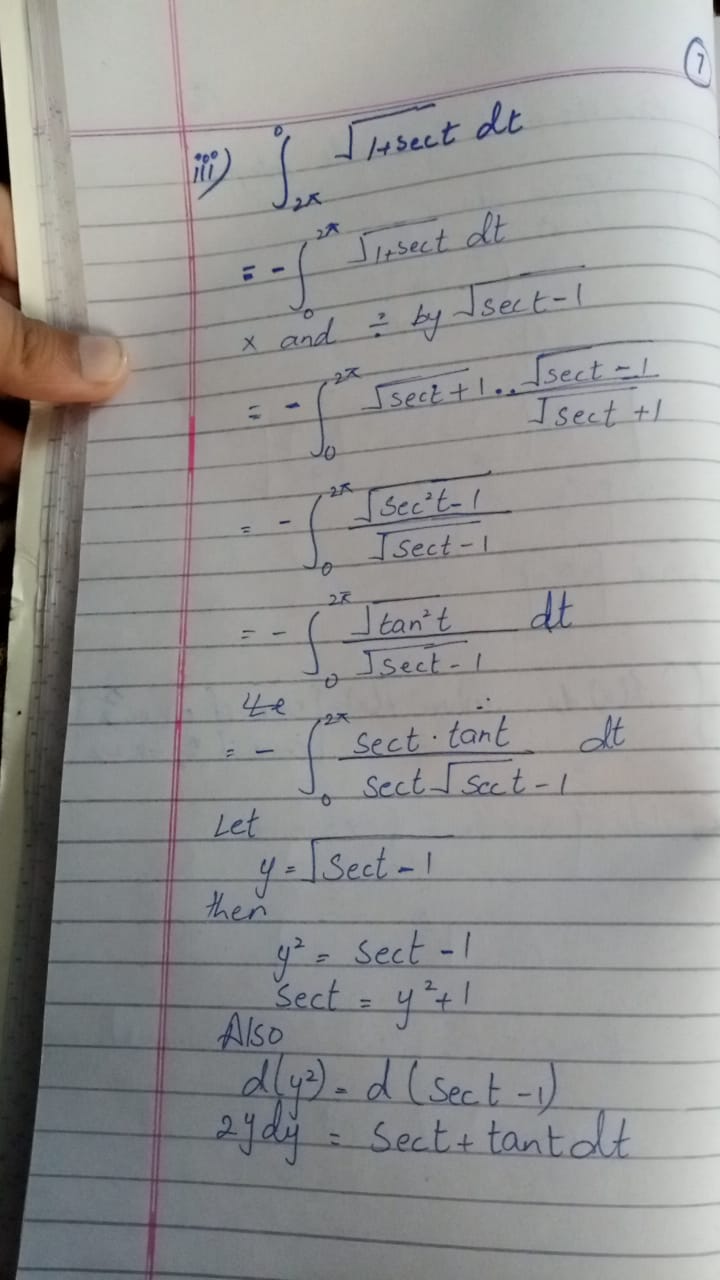 7
iii) ∫_{2π}^{0} √(1+sect) dt
= - ∫_{0}^{2π} √(1+sect) dt
x and ÷ by √(sect-1)
= - ∫_{0}^{2π} √(sect+1) .. √(sect-1) / √(sect+1)
= - ∫_{0}^{2π} √(sec²t-1) / √(sect-1)
= - ∫_{0}^{2π} √(tan²t) / √(sect-1) dt
= - ∫_{0}^{2π} sect · tant / sect √(sect-1) dt
Let
y = √(sect-1)
then
y² = sect -1
sect = y²+1
Also
d(y²) = d(sect -1)
2ydy = sect + tant dt